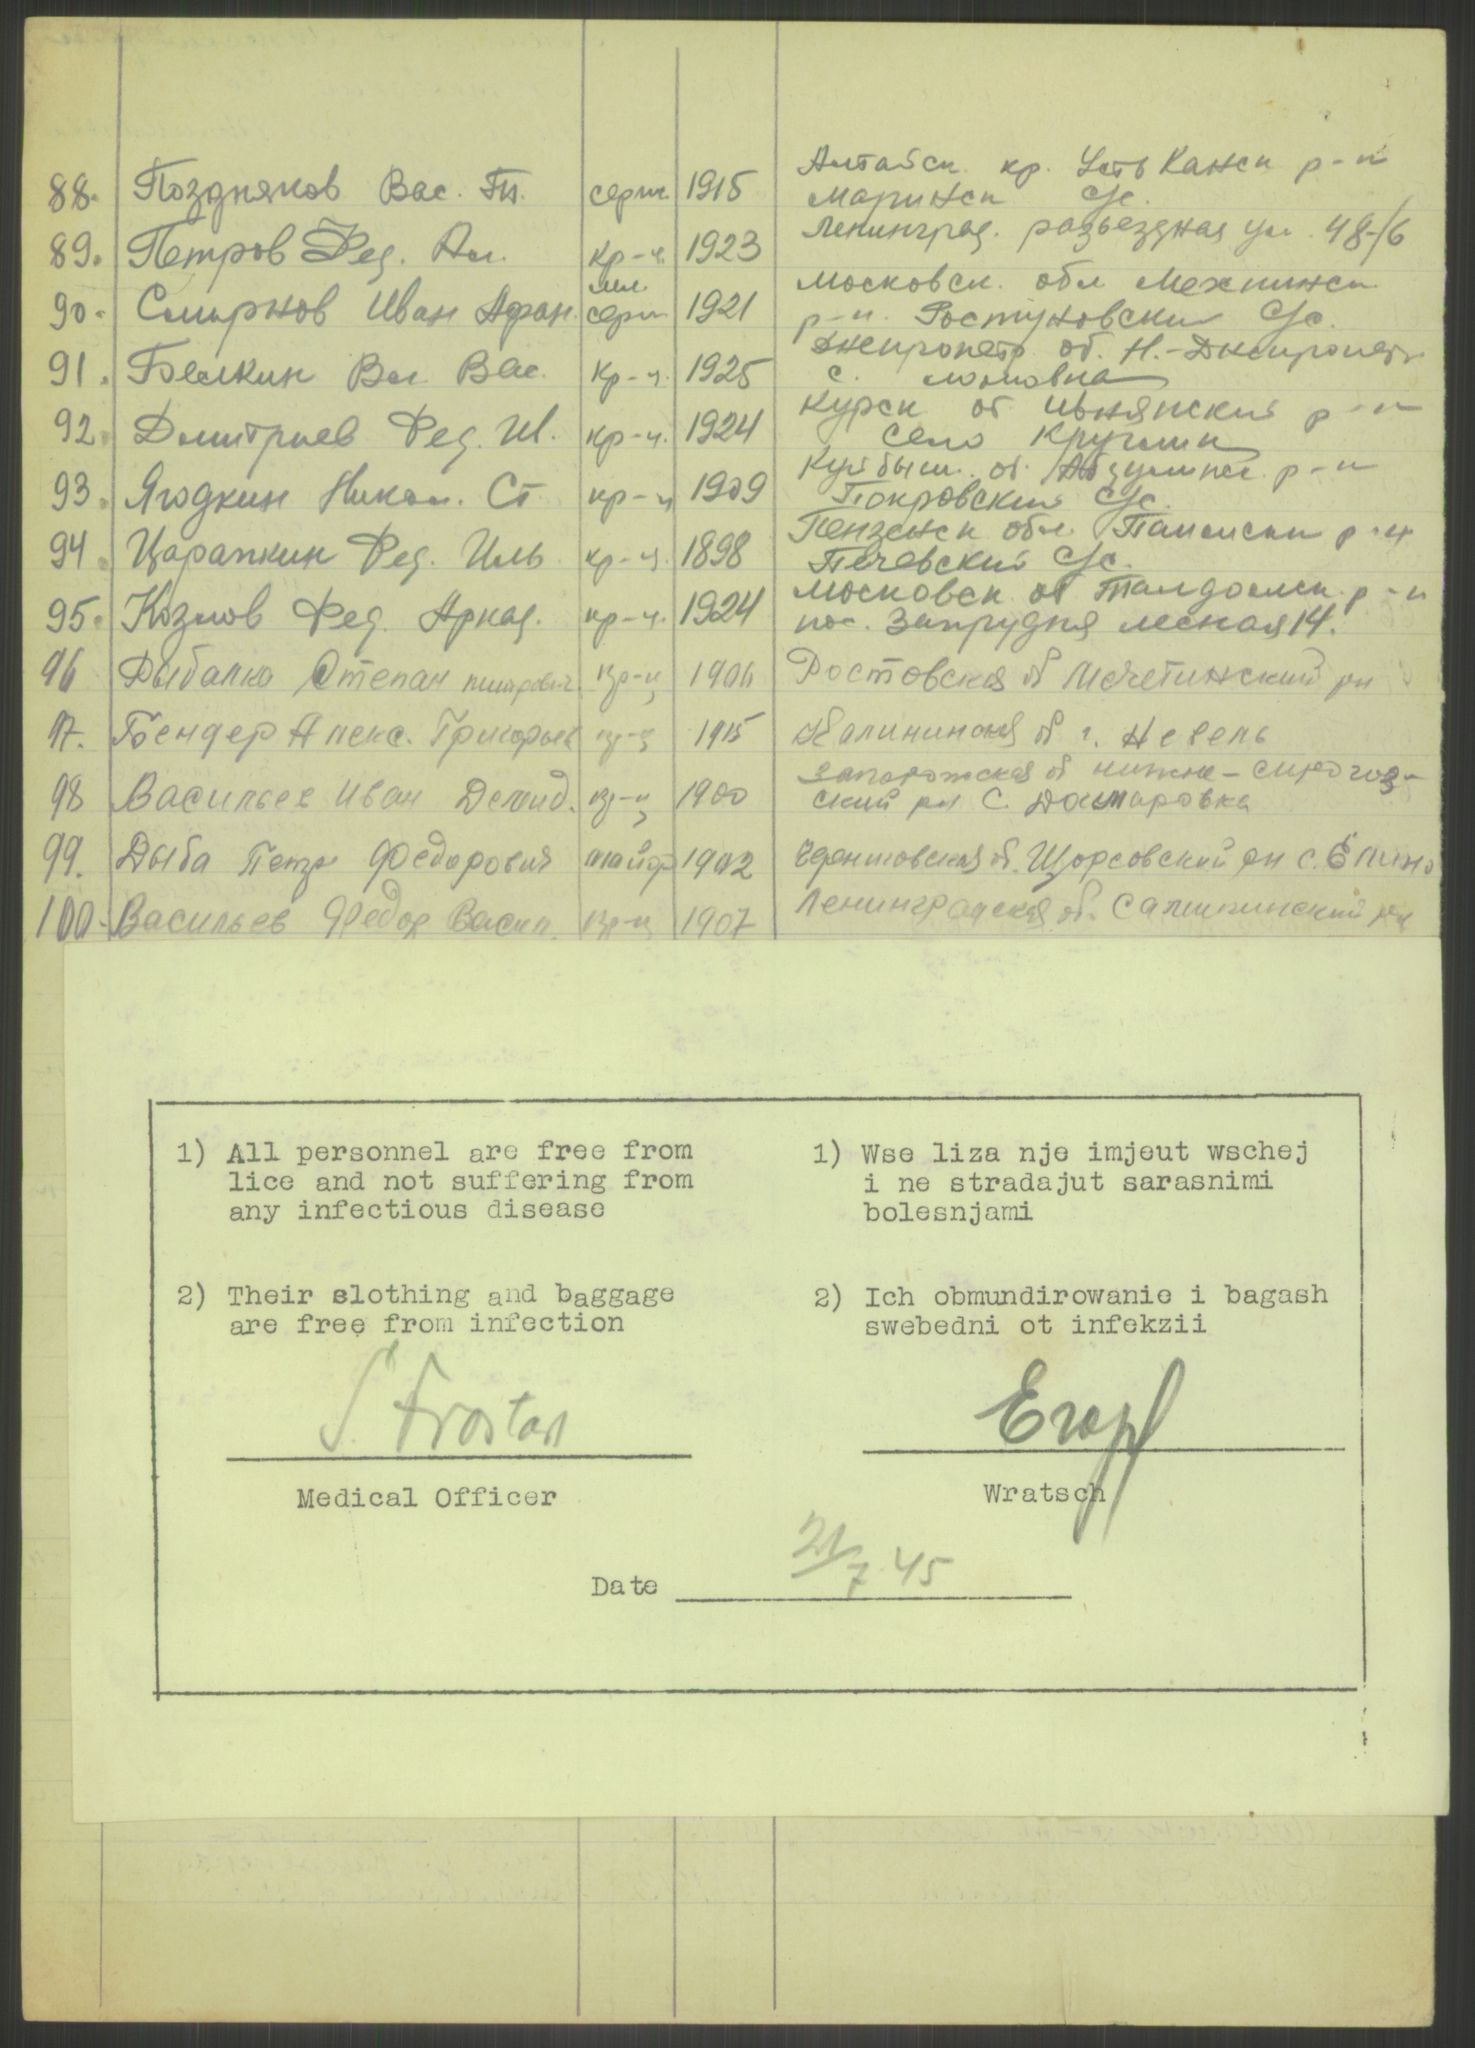 88. Поздняков Вас. Пл. серж. 1915 Алтайск. кр. Усть Канск р-н
Маринск с/с.
89. Петров Фед. Ал. кр-ц. 1923 Ленинград. разъездная ул. 48-/6
90. Смирнов Иван Афан. мл. серж 1921 Московск. обл. Мехнинск
р-н. Ростуновский с/с.
91. Белкин Вл. Вас. кр-ц. 1925 Днепропетр. об. Н.-Днепропетр.
с.
92. Дмитриев Фед. И. кр-ц. 1924 Курск об Ивнянский р-н
село Круглик
93. Ягодкин Никол. Ст кр-ц 1909 Куйбыш. об. р-н
Покровский с/с.
94. Царапкин Фед. Иль кр-ц. 1898 Пензенск обл. р-н
Печевский с/с.
95. Козлов Фед. Аркад. кр-ц. 1924 Московск об Талдомск. р-н
пос. Запрудня лесная 14.
96 Рыбалко Степан кр-ц 1906 Ростовская об Мечетинский рн
97. Бендер Алекс. Григорьев кр-ц 1915 Калининская об г. Невель
98 Васильев Иван Демид. кр-ц 1900 запорожская об нижне-
ский рн с.
99. Дыба Петр Федорович майор 1902 об. Щорсовский рн с. Елино
100. Васильев Федор Васил. кр-ц 1907 Ленинградская об. рн
1) All personnel are free from
lice and not suffering from
any infectious disease
1) Wse liza nje imjeut wschej
i ne stradajut sarasnimi
bolesnjami
2) Their slothing and baggage
are free from infection
2) Ich obmundirowanie i bagash
swebedni ot infekzii
Medical Officer
Wratsch
Date 21/7 45